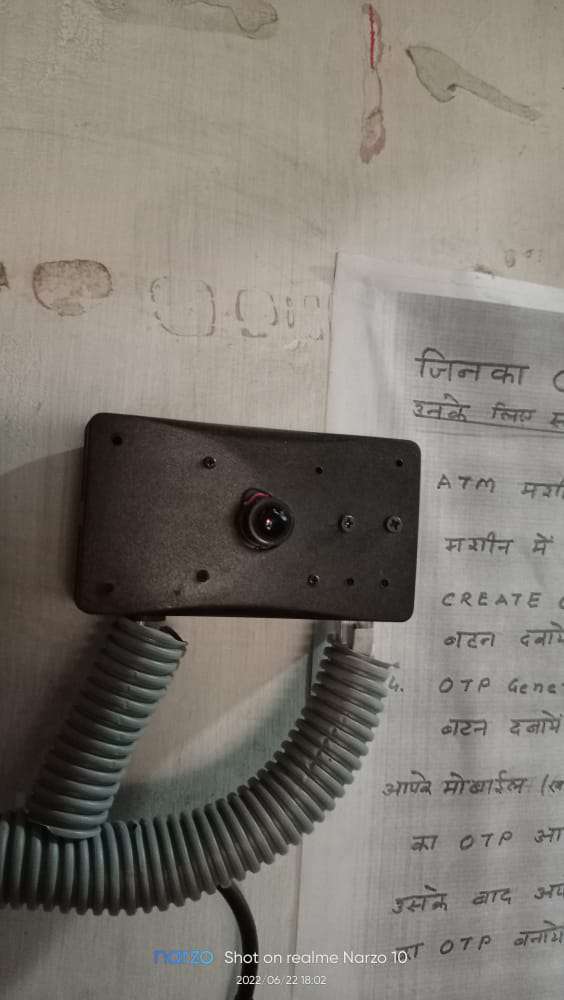 जिनका
उनके लिए
ATM
मशीन में
CREATE
बटन दबाये
4. OTP
बटन दबायें
आपके मोबाईल
का OTP आ
उसके बाद
का OTP बनाये
narzo Shot on realme Narzo 10
2022/06/22 18:02